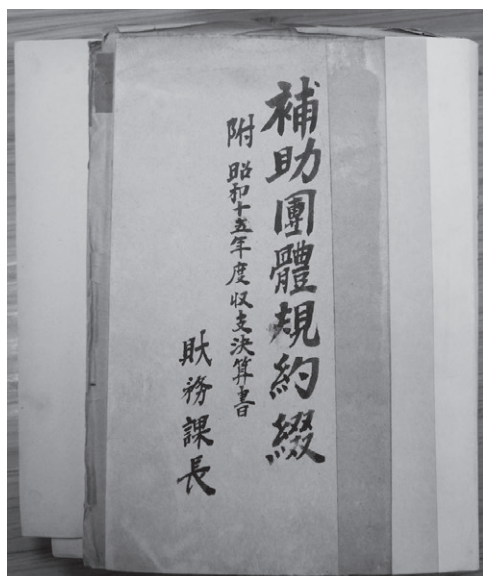 補助團體規約綴
附 昭和十五年度収支決算書
財務課長